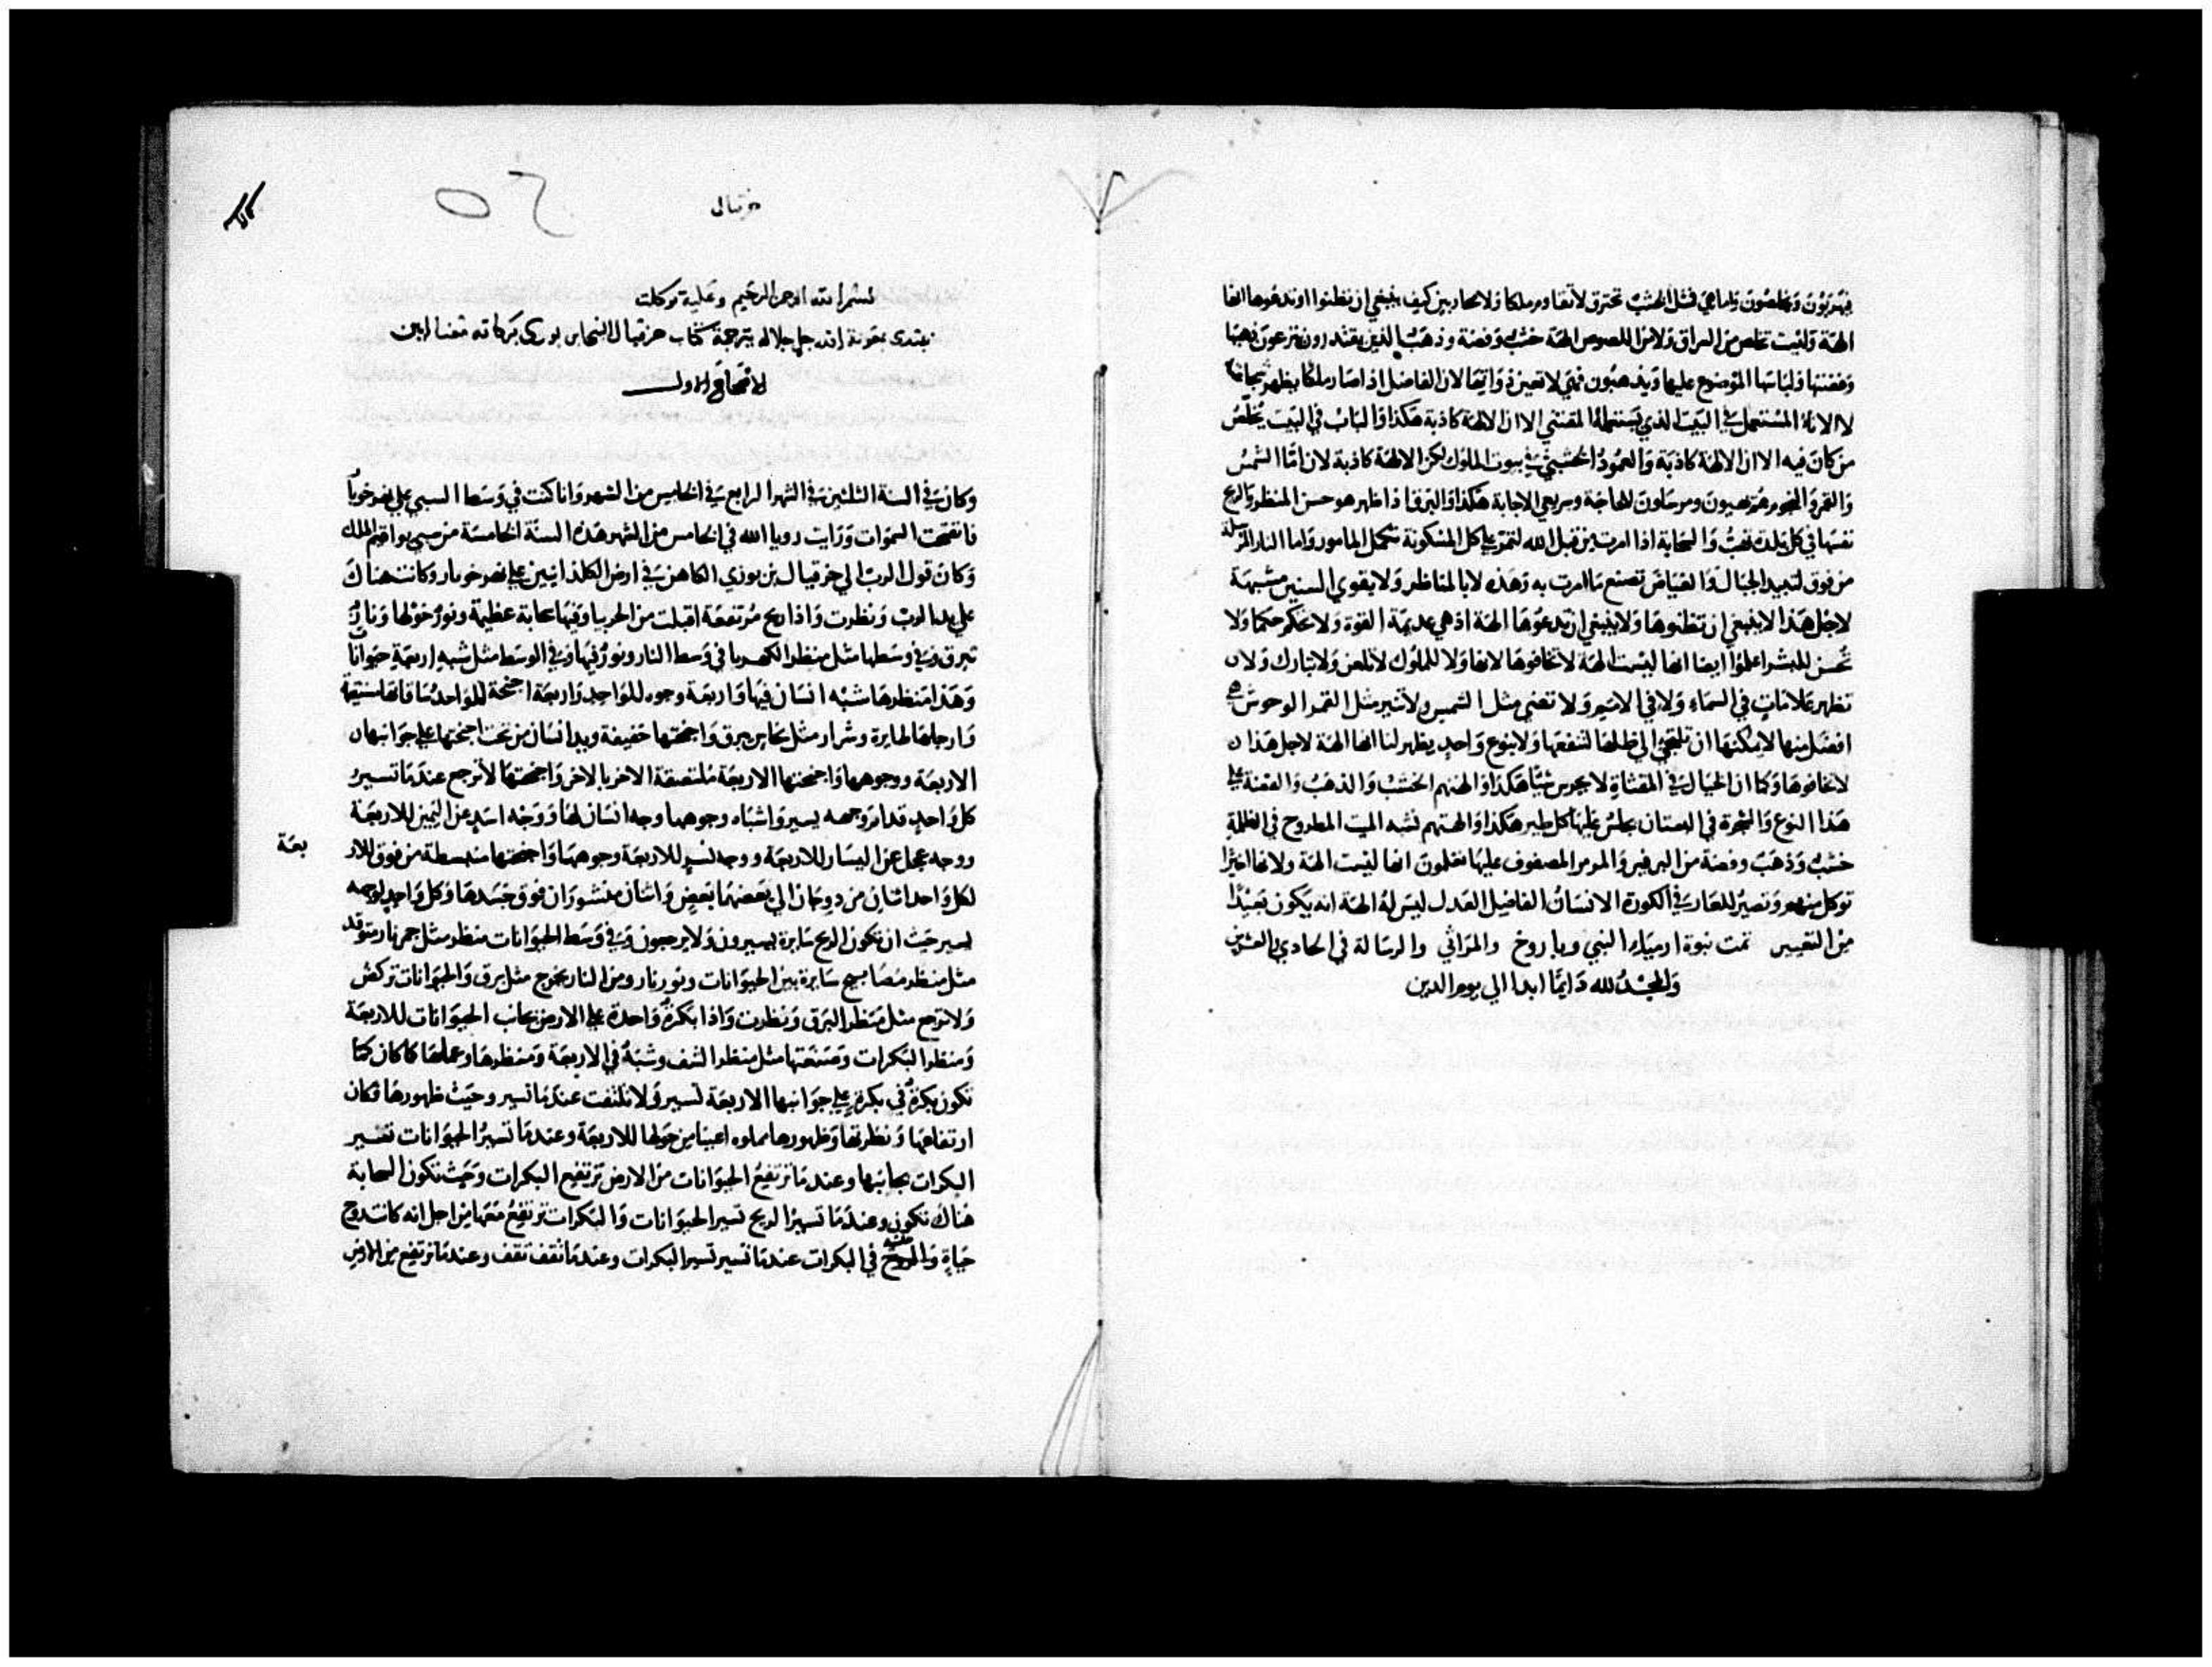 فيهربون ويخلصون واما هي فمثل الخشب تحترق لا تقاوم ملكا ولا محاربين كيف ينبغي ان تظنوا او تدعوها انها
الهة وليست تخلص من السراق ولا من اللصوص الهة خشب وفضة وذهب الذين يقتدرون ينزعون ذهبها
وفضتها ولباسها الموضوع عليها ويذهبون فهي لا تعين ذواتها لان الفاضل اذا صار ملكا يظهر شجاعة
لا الاناء المستعمل في البيت الذي يستعمله المقتني الا ان الالهة كاذبة هكذا والباب في البيت يخلص
من كان فيه الا ان الالهة كاذبة والعمود الخشبي في بيوت الملوك لكن الالهة كاذبة لان اما الشمس
والقمر والنجوم هم بهيون ومرسلون للحاجة وسريعي الاجابة هكذا والبرق اذا ظهر هو حسن المنظر والريح
نفسها في كل بلدة تهب والسحابة اذا امرت من قبل الله لتمر على كل المسكونة تكمل المامور واما النار المرسلة
من فوق لتبيد الجبال والغياض تصنع ما امرت به وهذه لا بالمناظر ولا بقوي السنين مشبهة
لاجل هذا لا ينبغي ان تظنوها ولا ينبغي ان تدعوها الهة اذ هي عديمة القوة ولا تحكم حكما ولا
تحسن للبشر اعلموا ايضا انها ليست الهة لا تخافوها لانها ولا للملوك لا تلعن ولا تبارك ولان
تظهر علامات في السماء ولا في الامم ولا تضي مثل الشمس ولا تنير مثل القمر الوحوش هي
افضل منها لامكنها ان تلتجي الى ظلها لتنفعها ولا بنوع واحد يظهر لنا انها الهة لاجل هذا
لا تخافوها وكما ان الخيال في المقثاة لا يحرس شيا هكذا والهتهم الخشب والذهب والفضة على
هذا النوع والشجرة في البستان يجلس عليها كل طير هكذا والهتهم تشبه الميت المطروح في الظلمة
خشب وذهب وفضة من البرفير والمرمر المصفوف عليها تعلمون انها ليست الهة ولانها اخيرا
توكل منهم وتصير للعار في الكورة الانسان الفاضل العدل ليس له الهة انه يكون بعيدا
من التعيير تمت نبوة ارمياء النبي وباروخ والمراثي والرسالة في الحادي والعشرين
والمجد لله دايما ابدا الى يوم الدين
حزقيال
بسم الله الرحمن الرحيم وعليه توكلت
نبتدي بمعونة الله جل جلاله بترجمة كتاب حزقيال بركاته معنا امين
الاصحاح الاول
وكان في السنة الثلثين في الشهر الرابع في الخامس من الشهر وانا كنت في وسط السبي على نهر خوبار
فانفتحت السموات ورايت رويا الله في الخامس من الشهر هذه السنة الخامسة من سبي يواقيم الملك
وكان قول الرب الى حزقيال بن بوزي الكاهن في ارض الكلدانيين على نهر خوبار وكانت هناك
علي يد الرب ونظرت واذا ريح مرتفعة اقبلت من الحربيا وفيها سحابة عظيمة ونور حولها ونار
تبرق وفي وسطها مثل منظر الكهربا في وسط النار ونور فيها وفي الوسط مثل شبه اربعة حيوانات
وهذا منظرها شبه انسان فيها واربعة وجوه للواحد واربعة اجنحة للواحد ساقاتها مستقيمة
وارجلها طايرة وشرار مثل نحاس يبرق واجنحتها خفيفة ويد انسان من تحت اجنحتها على جوانبهان
الاربعة ووجوهها واجنحتها الاربعة ملتصقة الاخر بالاخر واجنحتها لا ترجع عندما تسير
كل واحد قدام وجهه يسير واشباه وجوهها وجه انسان لها ووجه اسد عن اليمين للاربعة
ووجه عجل عن اليسار للاربعة ووجه نسر للاربعة وجوهها واجنحتها منبسطة من فوق للار
بعة
لكل واحد اثنان مزدوجان الى بعضهما بعض واثنان منشوران فوق جسدها وكل واحد لوجهه
يسير حيث ان تكون الريح سايرة يسيرون ولا يرجعون وفي وسط الحيوانات منظر مثل جمر نار متوقد
مثل منظر مصابيح سايرة بين الحيوانات ونور نار ومن النار يخرج مثل برق والحيوانات تركض
ولا ترجع مثل منظر البرق ونظرت واذا بكرة واحدة على الارض بجانب الحيوانات للاربعة
ومنظر البكرات وصنعتها مثل منظر وشبه في الاربعة ومنظرها وعملها كما كان كما
تكون بكرة في بكرة على جوانبها الاربعة تسير ولا تلتفت عندما تسير وحيث ظهورها فكان
ارتفاعها ونظرتها وظهورها مملوه اعينا من حولها للاربعة وعندما تسير الحيوانات تسير
البكرات بجانبها وعندما ترتفع الحيوانات من الارض ترتفع البكرات وحيث تكون السحابة
هناك تكون وعندما تسير الريح تسير الحيوانات والبكرات ترتفع معها من اجل انه كانت روح
حياة في البكرات عندما تسير تسير البكرات وعندما تقف تقف وعندما ترتفع من الارض